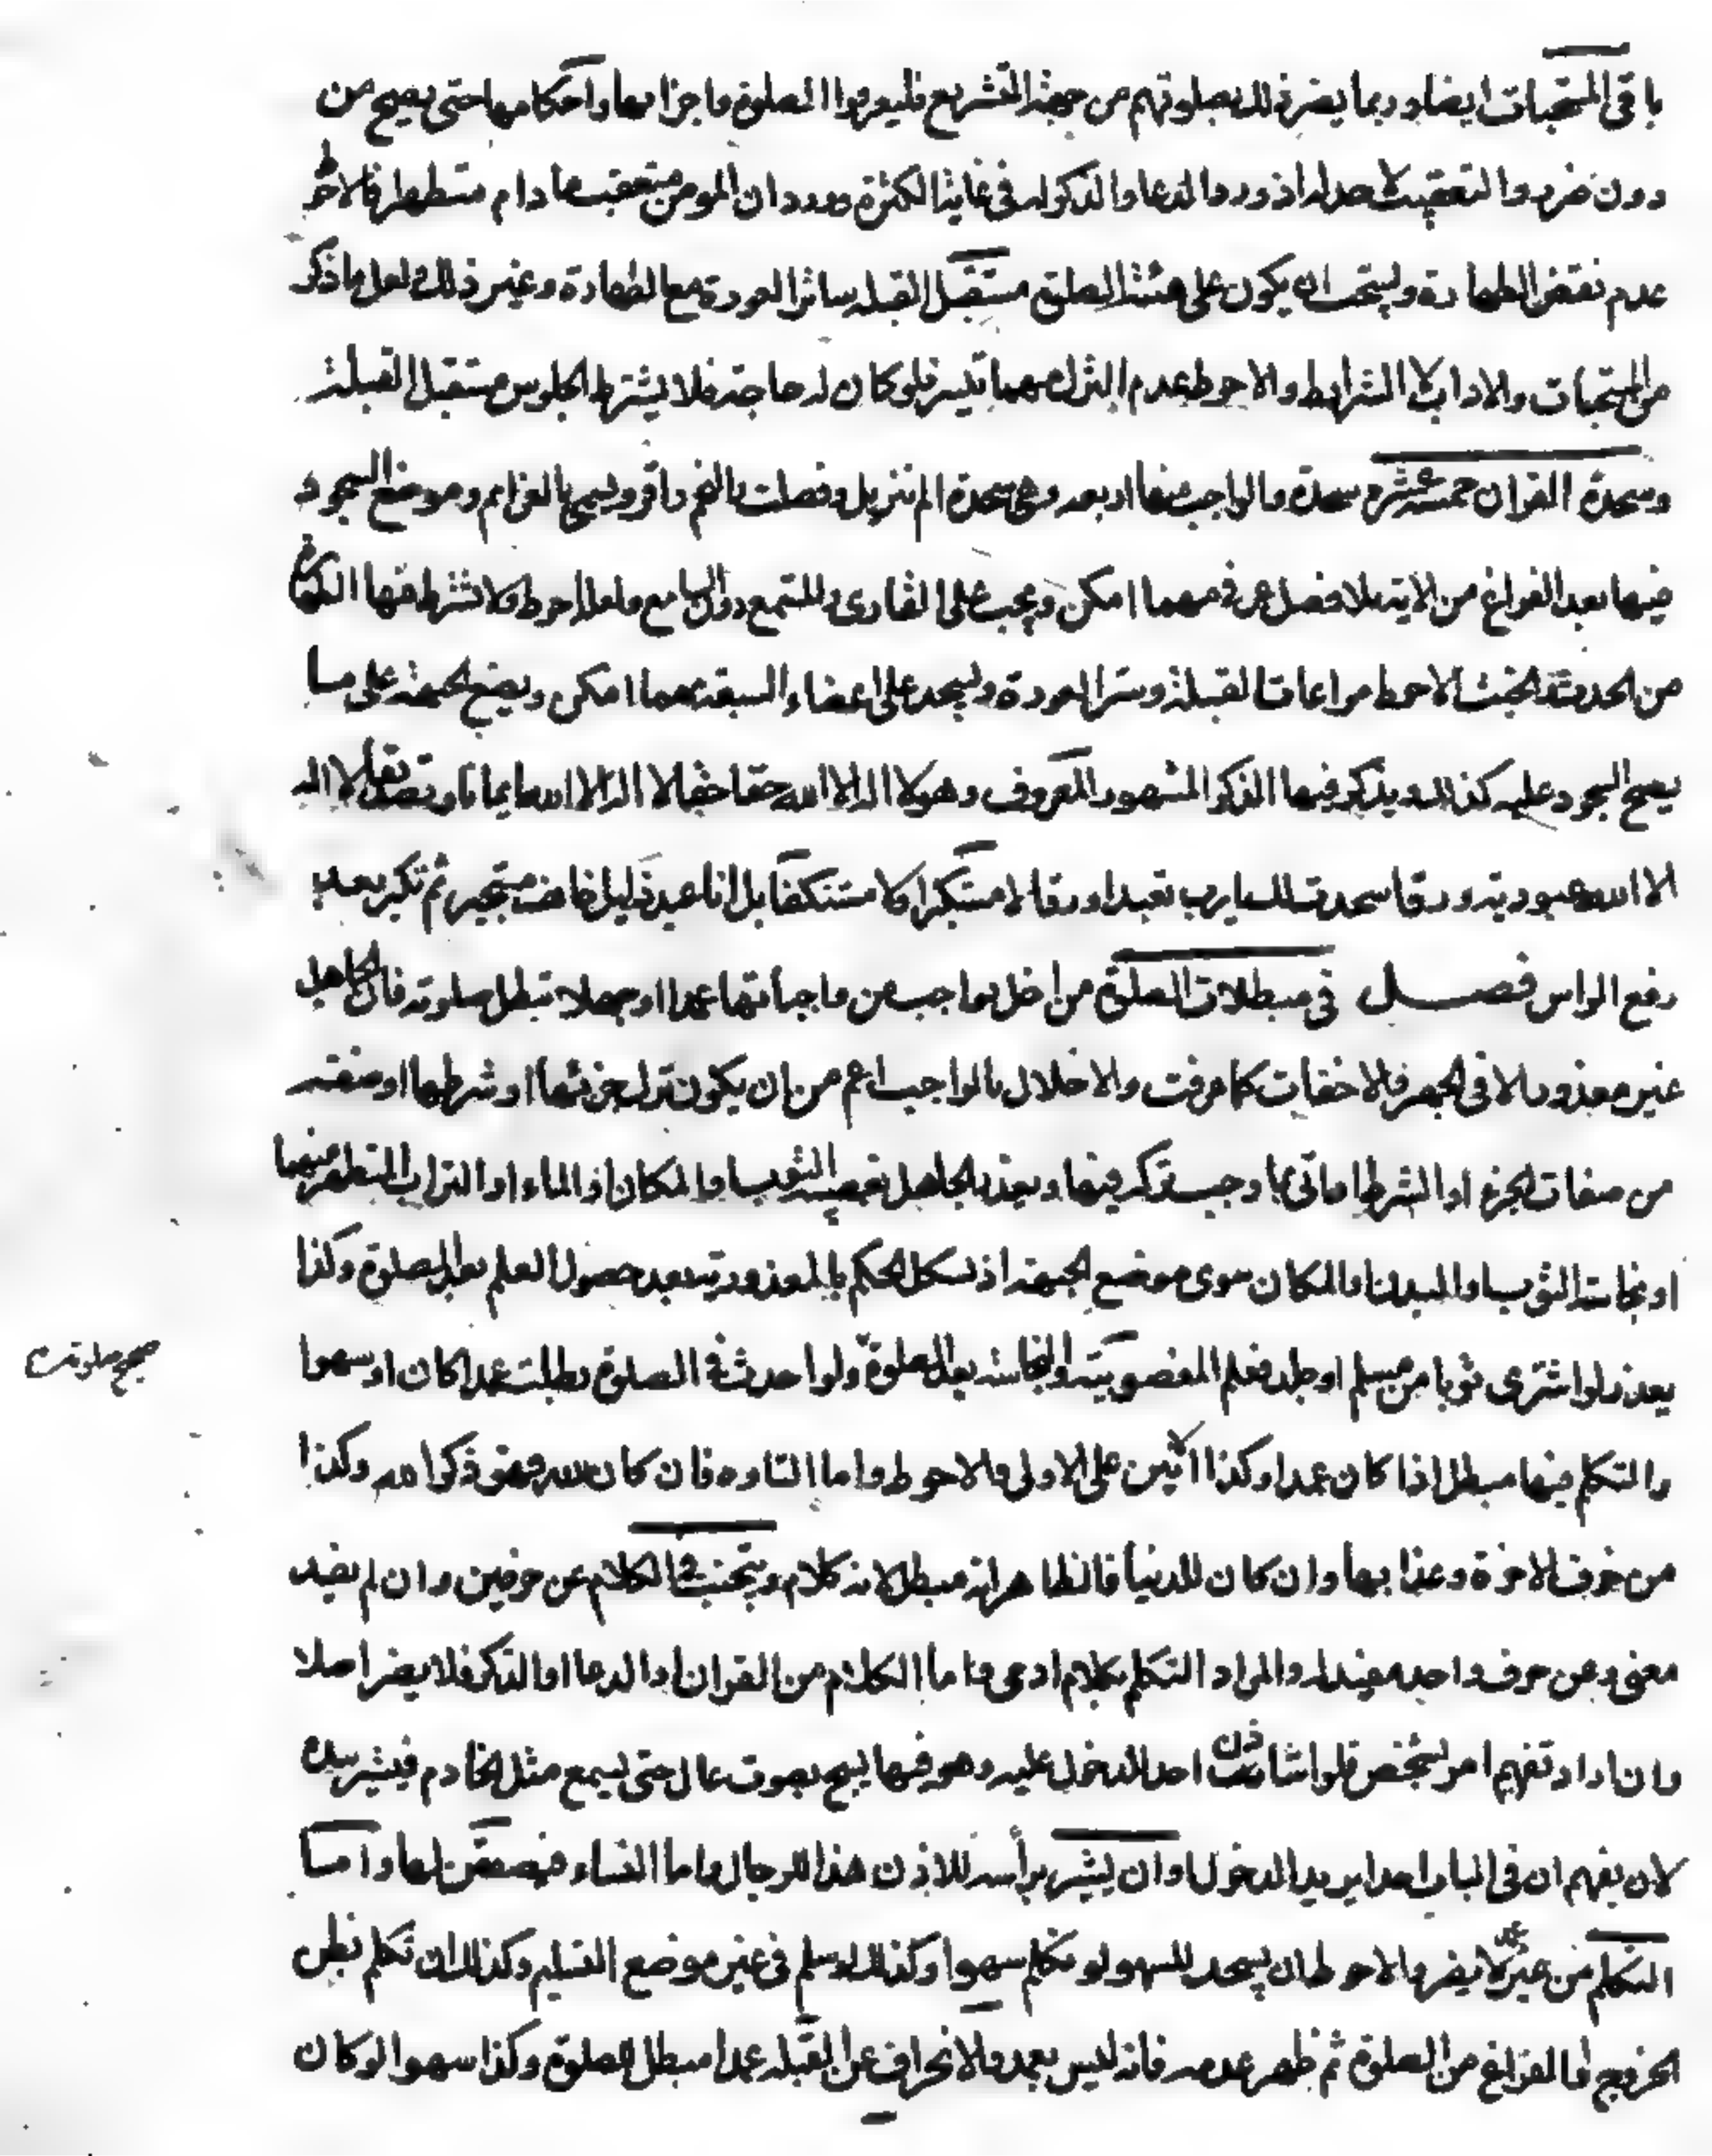 باقى المستحبات ايضا وربما يضر ذلك بصلوتهم من جهة التشريع فليعرفوا الصلوة واجزائها واحكامها حتى يصح من
دون ضرر والتعقيب لا حد له اذ ورد الدعا والذكر له فى غاية الكثرة وورد ان المومن متعقب ما دام متطهرا فالاحوط
عدم نقض الطهارة ويستحب ان يكون على هيئة الصلوة مستقبل القبله ساترا العورة مع الطهارة وغير ذلك ولعل ما ذكر
من المستحبات والاداب لا الشرايط والاحوط عدم الترك مهما تيسر فلو كان له حاجة فلا يشترط الجلوس مستقبل القبلة
وسجدة القران خمسة عشر سجدة والواجب منها اربعه وهى سجدة الم تنزيل وفصلت والنجم واقرء ويسمى بالعزائم وموضع السجود
فيها بعد الفراغ من الاية بلا فصل عرفى مهما امكن ويجب على القارى والمستمع دون السامع ولعله احوط ولا تشترط فيها الطهارة
من الحدث والخبث والاحوط مراعات القبلة وستر العورة وليسجد على اعضاء السبعة مهما امكن ويضع الجبهة على ما
يصح السجود عليه كذلك ويذكر فيها الذكر المشهور المعروف وهو لا اله الا الله حقا حقا لا اله الا الله ايمانا وتصديقا لا اله
الا الله عبودية ورقا سجدت لك يا رب تعبدا ورقا لا مستكبرا ولا مستنكفا بل انا عبد ذليل خائف مستجير ثم تكبر بعد
رفع الراس فصل فى مبطلات الصلوة من اخل بواجب من واجباتها عمدا او جهلا تبطل صلوته فان الجاهل
غير معذور الا فى الجهر والاخفات كما عرفت والاخلال بالواجب اعم من ان يكون ترك جزئها او شرطها او صفته
من صفات الجزء او الشرط اواتى بما وجب تركه فيها ويعذر الجاهل بغصبية الثوب او المكان او الماء او التراب المتطهر منهما
او نجاسة الثوب او البدن او المكان سوى موضع الجبهة اذ يشكل الحكم بالمعذورية بعد حصول العلم بعد الصلوة وكذا
يعذر لو اشترى ثوبا من مسلم او جلد فعلم المغصوبية او النجاسة بعد الصلوة ولو احدث فى الصلوة بطلت عمدا كان او سهوا
صحح صلوته
والتكلم فيها مبطل اذا كان عمدا وكذا الانين على الاولى والاحوط واما التاوه فان كان لله فهو ذكر الله وكذا
من خوف الاخرة وعذابها وان كان للدنيا فالظاهر انه مبطل لانه كلام ويتجنب فى الكلام عن حرفين وان لم يفيد
معنى وعن حرف واحد مفيد له والمراد التكلم بكلام ادمى واما الكلام من القران او الدعا او الذكر فلا يضر اصلا
وان اراد تفهيم امر لشخص فلو استاذن احد للدخول عليه وهو فيها يسبح بصوت عال حتى يسمع مثل الخادم فيشير بيده
لان يفهم ان فى الباب احدا يريد الدخول او ان يشير برأسه للاذن هذا للرجال واما النساء فيصفقن لها واما
التكلم من غير عمد لا يضر والاحوط ان يسجد للسهو لو تكلم سهوا وكذلك لو سلم فى غير موضع التسليم وكذلك ان تكلم بظن
الخروج او الفراغ من الصلوة ثم ظهر عدمه فانه ليس بعمد والانحراف عن القبله عمدا مبطل للصلوة وكذا سهوا لو كان